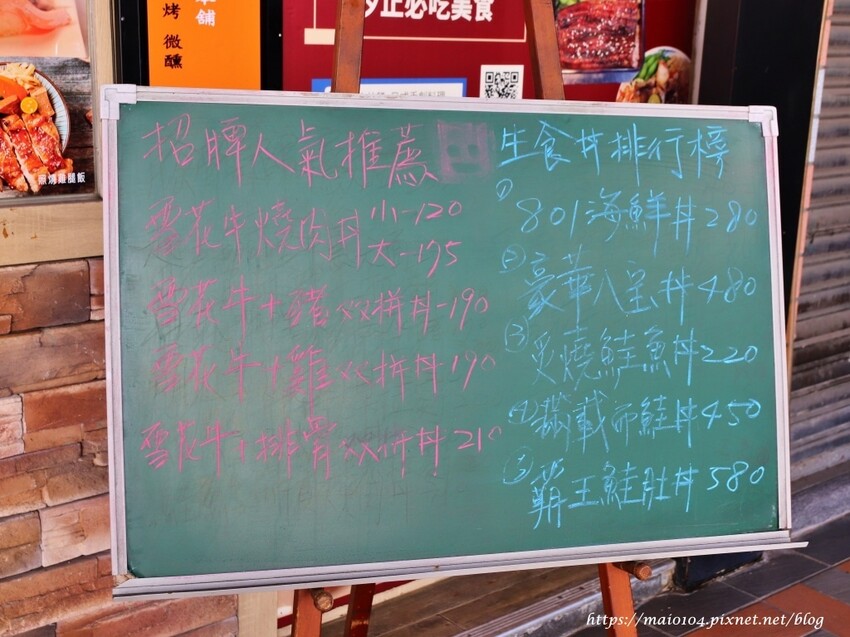 烤 微醺
舖
必吃美食
招牌人氣推薦
雪花牛燒肉丼 小-120
大-175
雪花牛+豬双拼丼-190
雪花牛+雞双拼丼-190
雪花牛+排骨双拼丼 210
生食丼排行榜
① 801海鮮丼280
② 豪華八宝丼480
③ 炙燒鮭魚丼220
④ 滿載而鮭丼450
⑤ 霸王鮭肚丼580
https://maio104.pixnet.net/blog